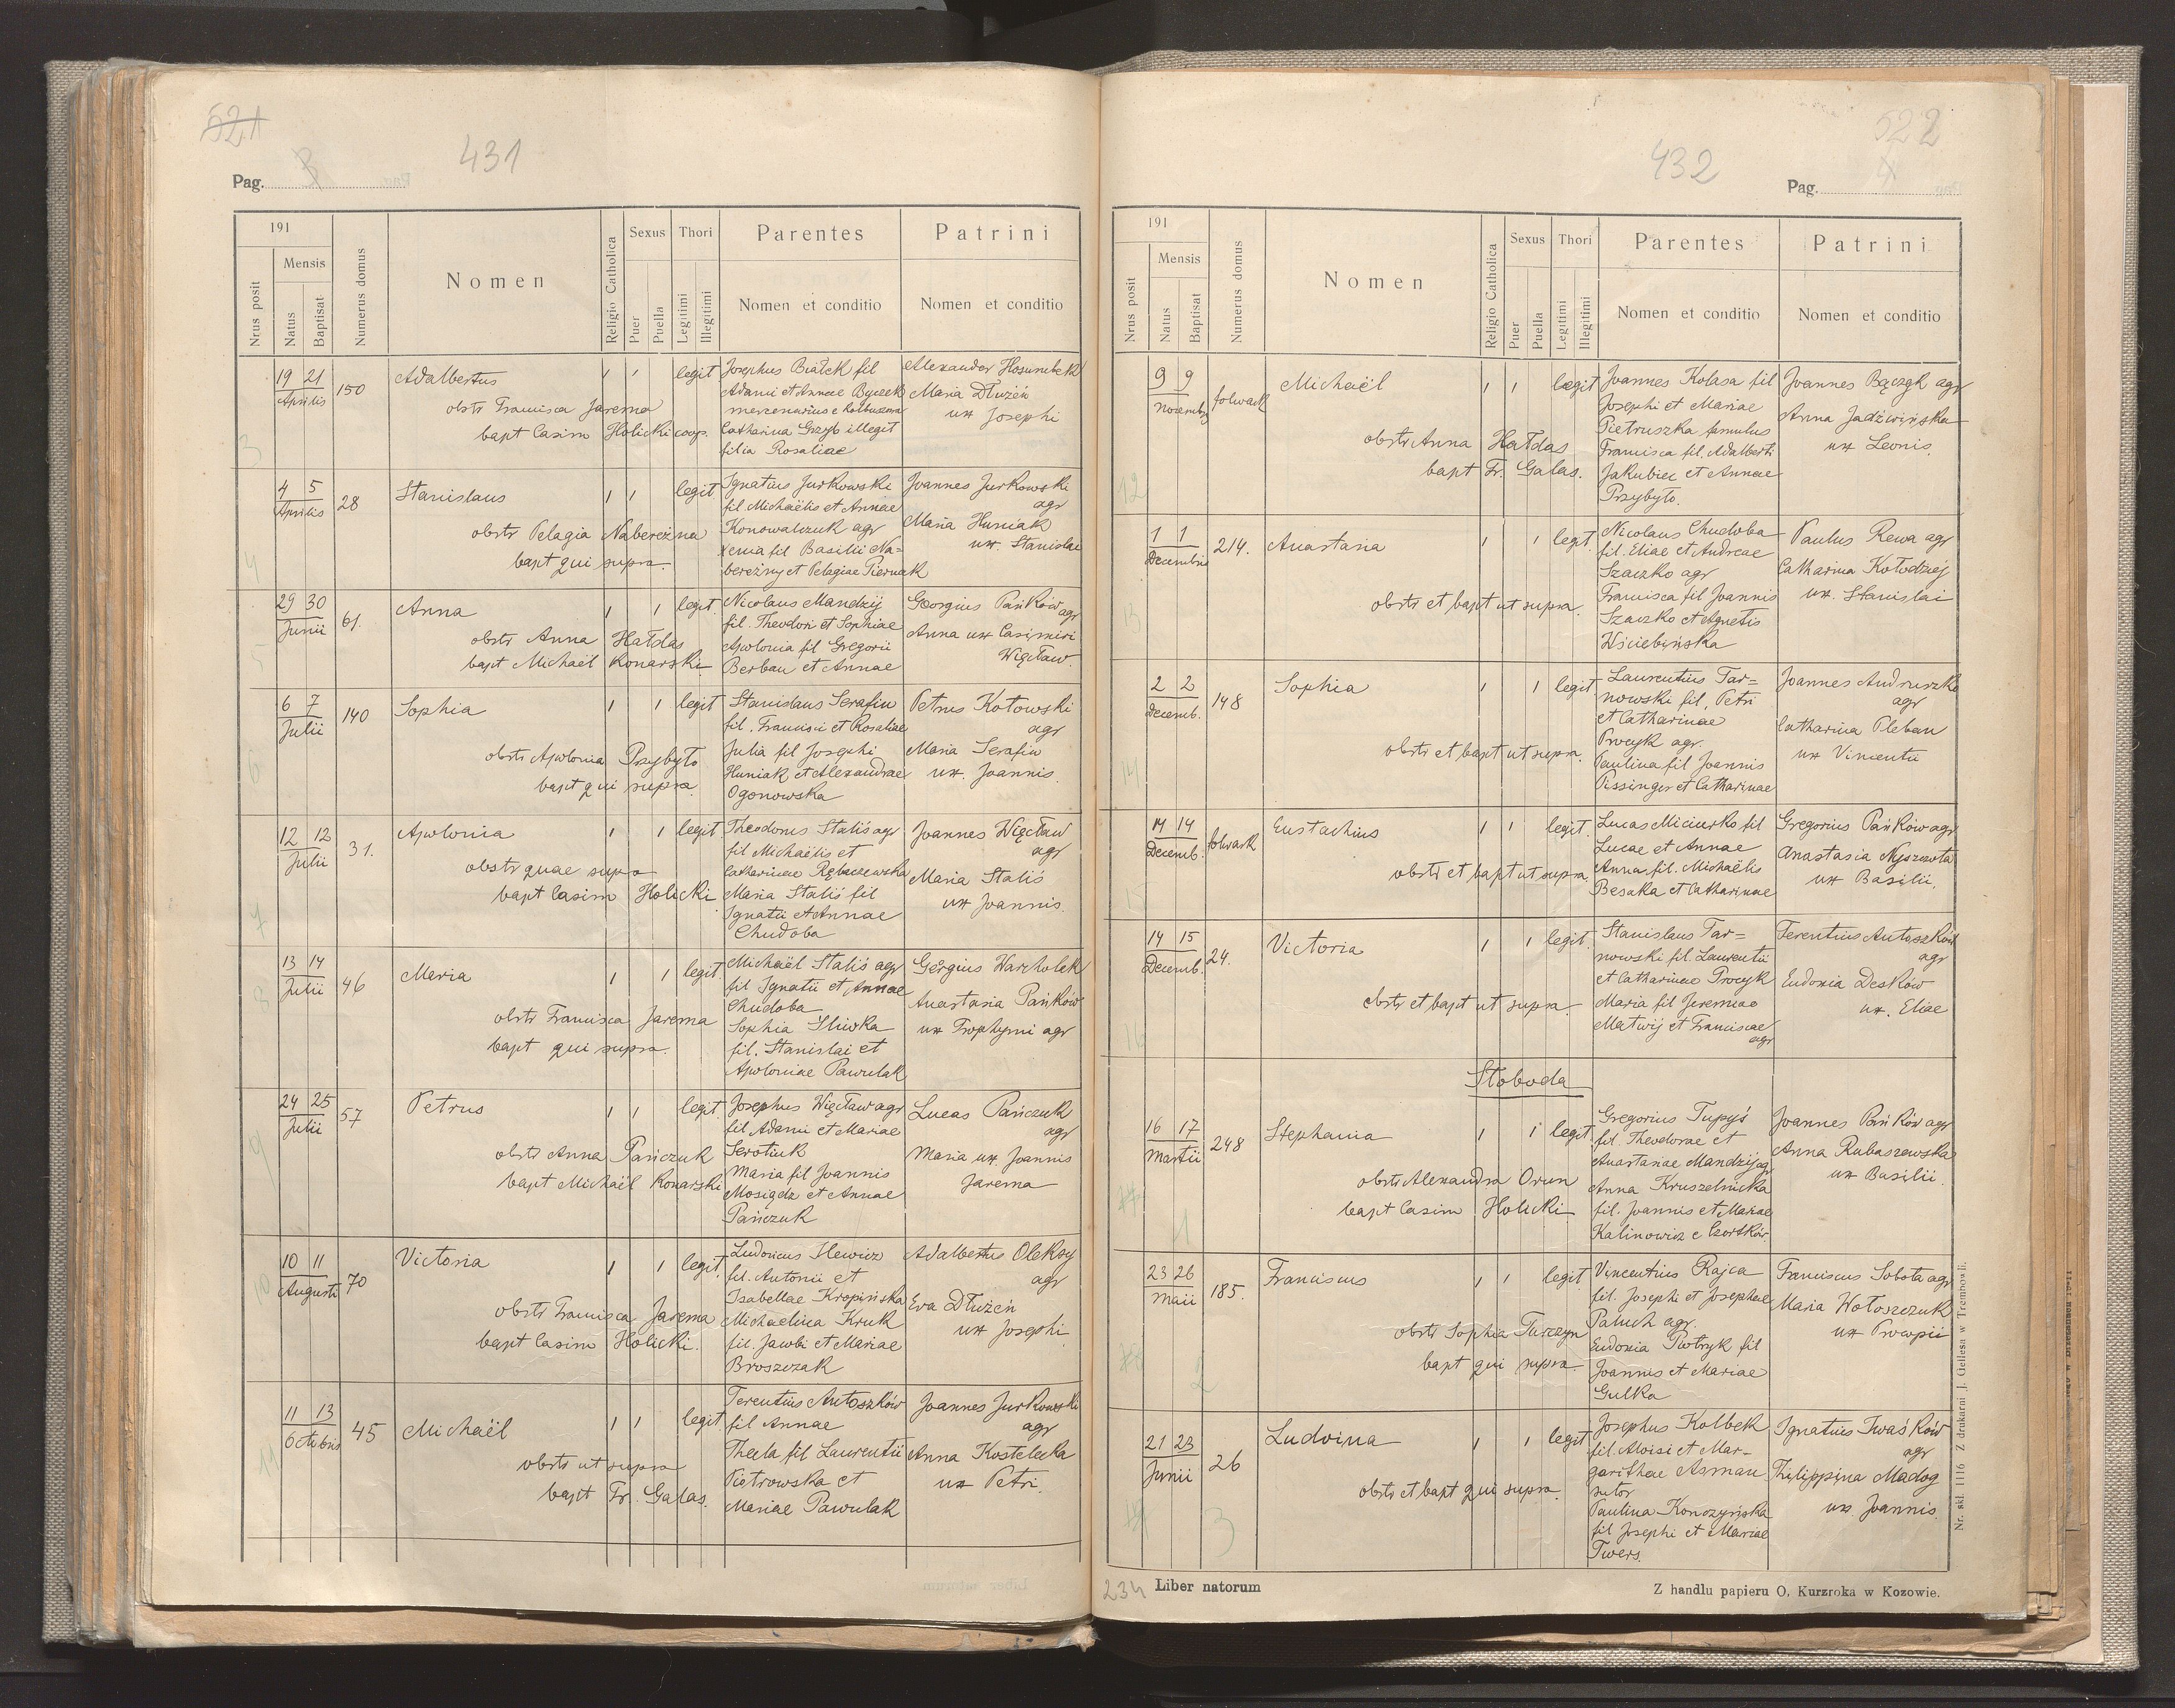 521
431
Pag. 3
191
Nrus posit
Mensis
Natus
Baptisat
Numerus domus
Nomen
Religio Catholica
Sexus
Puer
Puella
Thori
Legitimi
Illegitimi
Parentes
Nomen et conditio
Patrini
Nomen et conditio
3
19 21
Aprilis
150
Adalbertus
obstr Francisca Jarema
bapt Casim Holicki coop.
1 1 legit
Josephus Białek fil
Adami et Annae Byczek
mercenarius e Kolbuszowa
Catharina Grzyb illegit
filia Rosaliae
Alexander
Maria Dłużeń
ux Josephi
4
4 5
Aprilis
28
Stanislaus
obstr Pelagia Nabereżna
bapt qui supra.
1 1 legit
Ignatius Jurkowski
fil Michaëlis et Annae
Konowalczuk agr
Xenia fil Basilii Na=
bereżnyj et Pelagiae Pierniak
Joannes Jurkowski
agr
Maria Huniak
ux. Stanislai
5
29 30
Junii
61.
Anna
obstr Anna Hałdas
bapt Michaël Konarski
1 1 legit.
Nicolaus Mandzij
fil. Theodori et Sophiae
Apolonia fil Gregorii
Berban et Annae
Georgius Pańków agr
Anna ux Casimiri
Więcław.
6
6 7
Julii
140
Sophia
obstr Apolonia Przybyło
bapt qui supra.
1 1 legit
Stanislaus Serafin
fil. Francisci et Rosaliae
Julia fil Josephi
Huniak et Alexandrae
Ogonowska
Petrus Kotowski
agr
Maria Serafin
ux. Joannis.
7
12 12
Julii
31.
Apolonia
obstr quae supra
bapt Casim Holicki.
1 1 legit
Theodorus Staliś agr
fil Michaëlis et
Catharinae
Maria Staliś fil
Ignatii et Annae
Chudoba
Joannes Więcław
agr
Maria Staliś
ux Joannis.
8
13 14
Julii
46
Maria
obstr Francisca Jarema
bapt qui supra.
1 1 legit
Michaël Staliś agr
fil Ignatii et Annae
Chudoba
Sophia Śliwka
fil. Stanislai et
Apoloniae Pawulak
Georgius Warcholek
Anastasia Pańków
ux Trophymi agr
9
24 25
Julii
57
Petrus
obstr Anna Pańczuk
bapt Michaël Konarski
1 1 legit.
Josephus Więcław agr
fil Adami et Mariae
Serotiuk
Maria fil Joannis
Mosiądz et Annae
Pańczuk
Lucas Pańczuk
agr
Maria ux. Joannis
Jarema
10
10 11
Augusti
70
Victoria
obstr Francisca Jarema
bapt Casim Holicki.
1 1 legit.
Ludovicus Ilewicz
fil. Antonii et
Isabellae Kropińska
Michaelina Kruk
fil. Jacobi et Mariae
Broszczak
Adalbertus Oleksy
agr
Eva Dłużeń
ux Josephi
11
11 13
Octobris
45
Michaël
obstr ut supra
bapt Fr. Galas.
1 1 legit
Terentius Antoszków
fil Annae
Thecla fil Laurentii
Piotrowska et
Mariae Pawulak
Joannes Jurkowski
agr
Anna Kostelecka
ux Petri.
522
432
Pag. 4
191
Nrus posit
Mensis
Natus
Baptisat
Numerus domus
Nomen
Religio Catholica
Sexus
Puer
Puella
Thori
Legitimi
Illegitimi
Parentes
Nomen et conditio
Patrini
Nomen et conditio
12
9 9
novembr
folwark
Michaël
obstr Anna Hałdas
bapt Fr. Galas.
1 1 legit
Joannes Kolasa fil
Josephi et Mariae
Pietruszka famulus
Francisca fil. Adalberti
Jakubiec et Annae
Przybyło.
Joannes Bączyk agr
Anna Jadźwińska
ux Leonis.
13
1 1
Decembris
214.
Anastasia
obstr et bapt ut supra.
1 1 legit.
Nicolaus Chudoba
fil. Eliae et Andreae
Szaczko agr
Francisca fil Joannis
Szaczko et Agnetis
Wścibińska
Paulus Rewa agr
Catharina Kołodziej
ux. Stanislai
14
2 2
Decemb.
148
Sophia
obstr et bapt ut supra.
1 1 legit
Laurentius Tar=
nowski fil, Petri
et Catharinae
Procyk agr.
Paulina fil Joannis
Pissinger et Catharinae
Joannes Andruszko
agr
Catharina Pleban
ux Vincentii
15
14 14
Decemb.
folwark
Eustachius
obstr et bapt ut supra.
1 1 legit.
Lucas Miciurko fil
Lucae et Annae
Anna. fil. Michaëlis
Besaka et Catharinae
Gregorius Pańków agr
Anastasia Nyszczota
ux Basilii.
16
14 15
Decemb.
24.
Victoria
obstr et bapt ut supra.
1 1 legit.
Stanislaus Tar=
nowski fil. Laurentii
et Catharinae Procyk
Maria fil Jeremiae
Matwij et Franciscae
agr
Terentius Antoszków
agr
Eudoxia Desków
ux. Eliae
Słoboda
16 17
Martii
248
Stephania
obstr Alexandra Orun
bapt Casim Holicki
1
1 1 legit.
Gregorius Tupyś
fil. Theodorae et
Anastasiae Mandzij agr
Anna Kruszelnicka
fil. Joannis et Mariae
Kalinowicz e Czortków.
Joannes Pańków agr
Anna Rubaszewska
ux Basilii.
23 26
Maii
185.
Franciscus
obstr Sophia Turczyn
bapt qui supra.
2
1 1 legit
Vincentius Rajca
fil. Josephi et Josephae
Paluch agr.
Eudoxia Piotryk fil
Joannis et Mariae
Gulka
Franciscus Sobota agr
Maria Wołoszczuk
ux Procopii
21 23
Junii
26
Ludvina
obstr et bapt qui supra.
3
1 1 legit
Josephus Kolbek
fil. Aloisi et Mar-
garithae Asman
sutor
Paulina Konczyńska
fil Josephi et Mariae
Twers.
Ignatius Iwaśków
agr
Philippina Madog
ux. Joannis.
234
Liber natorum
Z handlu papieru O. Kurzroka w Kozowie.
Nr. skł. 1116 Z drukarni J. Gellesa w Trembowli.